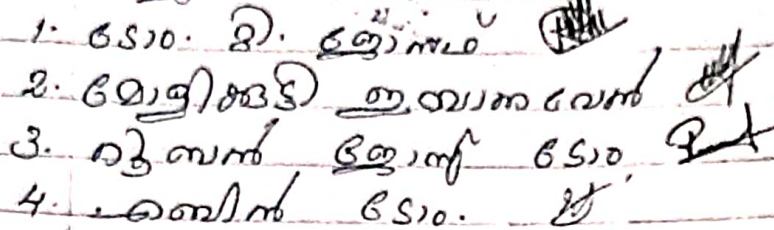 1. ടോം. മി. ജോസഫ്
2. മോളിക്കുട്ടി ഇമ്മാനുവേൽ
3. റൂബൻ ജോസ് ടോം
4. എബിൻ ടോം.